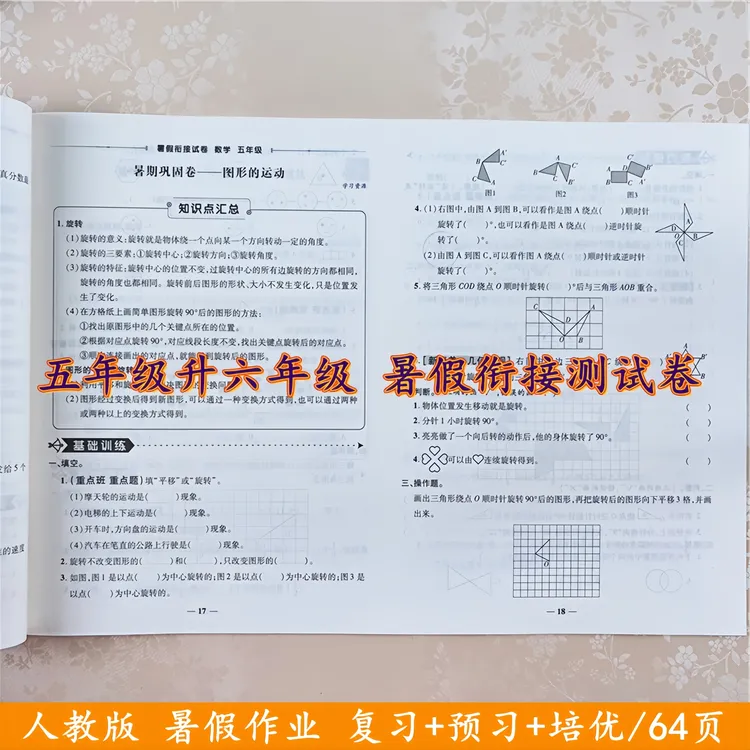 真分数最
定给 5 个
的速度
暑假衔接试卷 数学 五年级
暑期巩固卷——图形的运动
学习资源
知识点汇总
1. 旋转
(1)旋转的意义:旋转就是物体绕一个点向某一个方向转动一定的角度。
(2)旋转的三要素:①旋转中心;②旋转方向;③旋转角度。
(3)旋转的特征:旋转中心的位置不变,过旋转中心的所有边旋转的方向都相同,
旋转的角度也都相同。旋转前后图形的形状、大小不发生变化,只是位置发
生了变化。
(4)在方格纸上画简单图形旋转90°后的图形的方法:
①找出原图形中的几个关键点所在的位置。
②根据对应点旋转90°,对应线段长度不变,找出关键点旋转后的对应点。
(2)图形经过变换后得到新图形,可以通过一种变换方式得到,也可以通过两种
或两种以上的变换方式得到。
基础训练
一、填空。
1.(重点班 重点题)填“平移”或“旋转”。
(1)摩天轮的运动是( )现象。
(2)电梯的上下运动是( )现象。
(3)开车时,方向盘的运动是( )现象。
(4)汽车在笔直的公路上行驶是( )现象。
2. 旋转不改变图形的( )和( ),只改变图形的( )。
3. 如图,图1是以点( )为中心旋转的;图2是以点( )为中心旋转的;图3是
以点( )为中心旋转的。
— 17 —
图1 图2 图3
4.(1)右图中,由图 A 到图 B,可以看作是图 A 绕点( )顺时针
旋转了( )°,也可以看作是图 A 绕点( )逆时针旋
转了( )°。
(2)由图 A 到图 C,可以看作是图 A 绕点( )顺时针或逆时针
旋转了( )°。
5. 将三角形 COD 绕点 O 顺时针旋转( )°后与三角形 AOB 重合。
1. 物体位置发生移动就是旋转。 ( )
2. 分针1小时旋转90°。 ( )
3. 亮亮做了一个向后转的动作后,他的身体旋转了90°。 ( )
4. 可以由连续旋转得到。 ( )
三、操作题。
画出三角形绕点 O 顺时针旋转90°后的图形,再把旋转后的图形向下平移3格,并画
出来。
— 18 —
五年级升六年级 暑假衔接测试卷
人教版 暑假作业 复习+预习+培优/64页